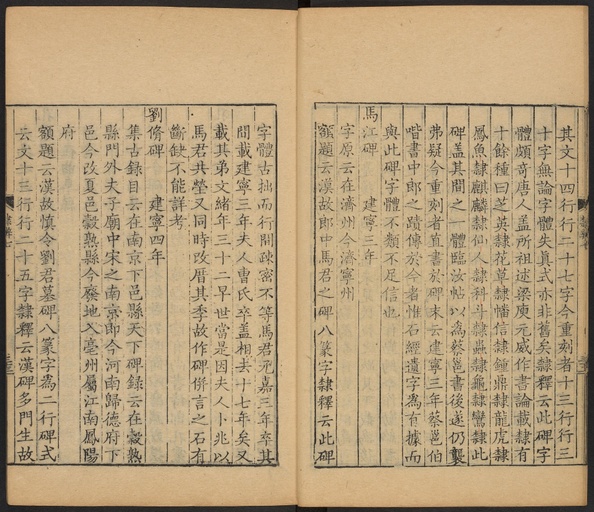 其文十四行行二十七字今重刻者十三行行三
十字無論字體失真式亦非舊矣隸釋云此碑字
體頗奇唐人蓋所祖述梁庾元威作書論載隸有
十餘種曰芝英隸花草隸幡信隸鍾鼎隸龍虎隸
鳳魚隸麒麟隸仙人隸科斗隸蟲隸龜隸鸞隸此
碑蓋其間之一體臨汝帖以為蔡邕書後遂仍襲
弗疑今重刻者直書於碑末云建寧三年蔡邕伯
喈書中郎之蹟傳於今者惟石經遺字為有據而
與此碑字體不類不足信也
馬江碑 建寧三年
字原云在濟州今濟寧州
額題云漢故郎中馬君之碑八篆字隸釋云此碑
字體古拙而行間疏密不等馬君元嘉三年卒其
間載建寧三年夫人曹氏卒蓋相去十七年矣又
載其弟文緒年三十二早世當是因夫人卜兆以
馬君共塋又同時改厝其季故作碑併言之石有
斷缺不能詳考
劉脩碑 建寧四年
集古錄目云在南京下邑縣天下碑錄云在穀熟
縣門外夫子廟中宋之南京即今河南歸德府下
邑今改夏邑穀熟縣今廢地入亳州屬江南鳳陽
府
額題云漢故慎令劉君墓碑八篆字為二行碑式
云文十三行行二十五字隸釋云漢碑多門生故